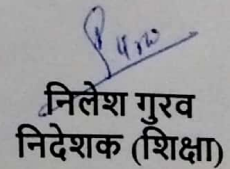 निलेश गुरव
निदेशक (शिक्षा)